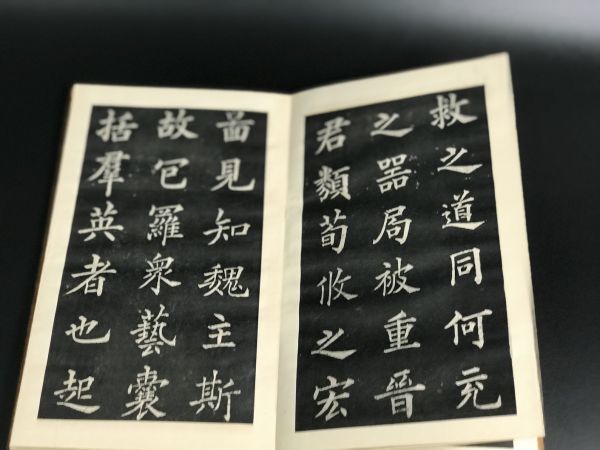 救之道同何充
之器局被重晉
君類荀攸之宏
啚見知魏主斯
故包羅衆藝囊
括羣英者也起